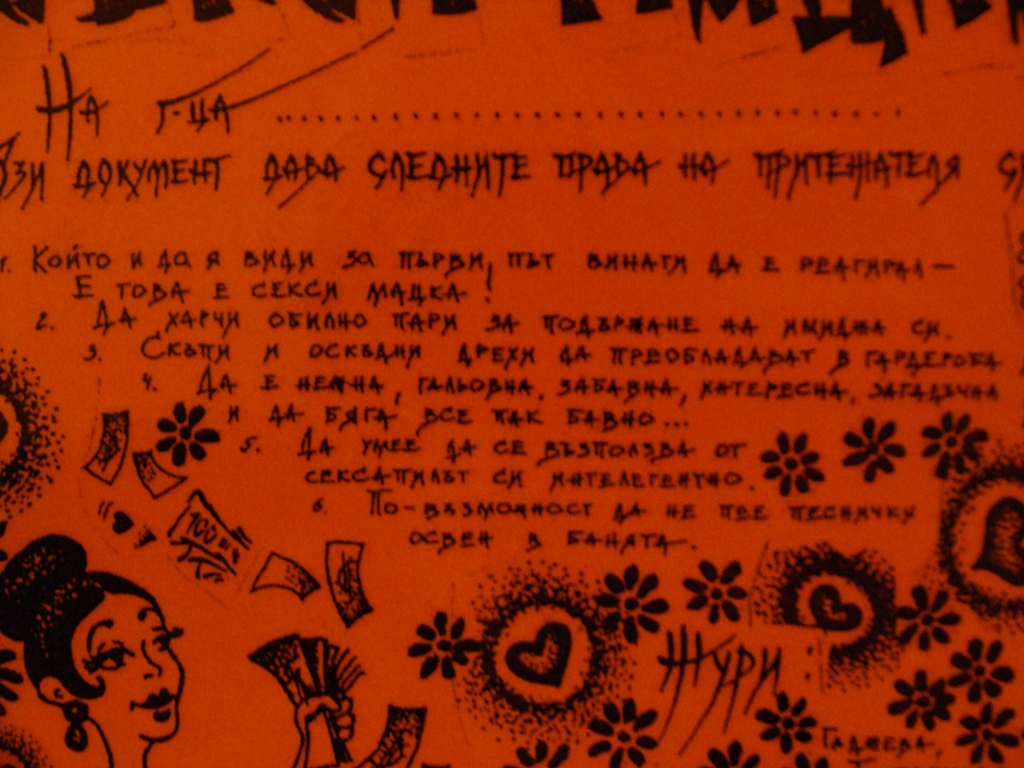 На г-ца ........................................
ози документ дава следните права на притежателя
1. Който и да я види за първи път винаги да е реагирал –
Е това е секси мацка!
2. Да харчи обилно пари за подържане на имиджа си.
3. Скъпи и оскъдни дрехи да преобладават в гардероба
4. Да е нежна, гальовна, забавна, интересна, загадъчна
и да бяга все пак бавно...
5. Да умее да се възползва от
сексапилът си интелегентно.
6. По-възможност да не пее песнички
освен в банята.
100
Жури:
Гаджева,